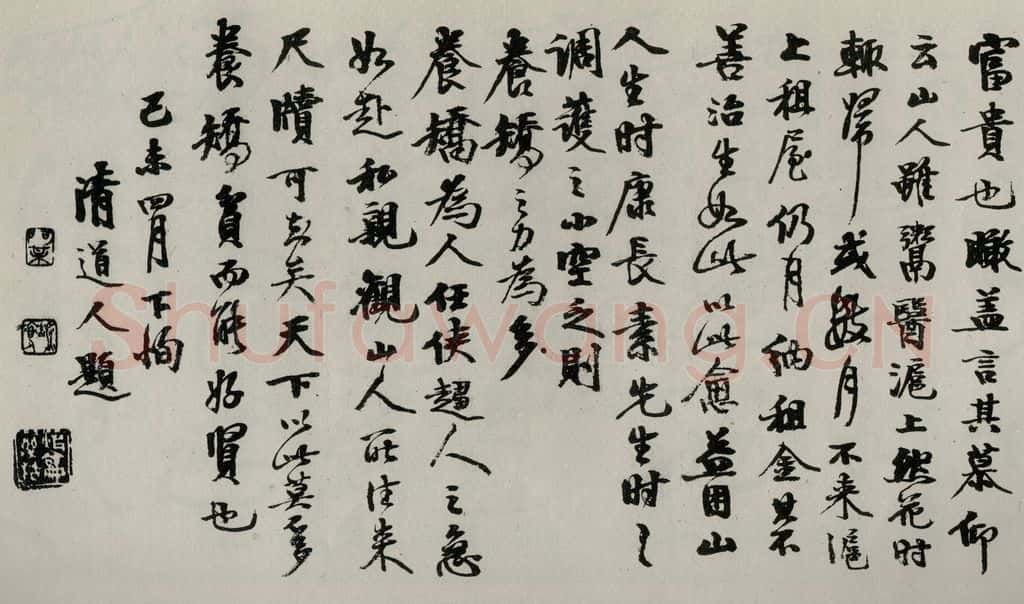 富貴也瞰盖言其慕仰
云山人雖鬻醫滬上然花时
輒歸或數月不来滬
上租屋仍月纳租金其不
善治生如此以此愈益困山
人生时康長素先生时々
调護之小空乏則
養矯之力為多
養矯為人任侠趨人之急
如赴私親觀山人所往来
尺牘可知矣天下以此莫不多
養矯貧而能好賢也
己未四月下恂
清道人題
Shufawang.CN